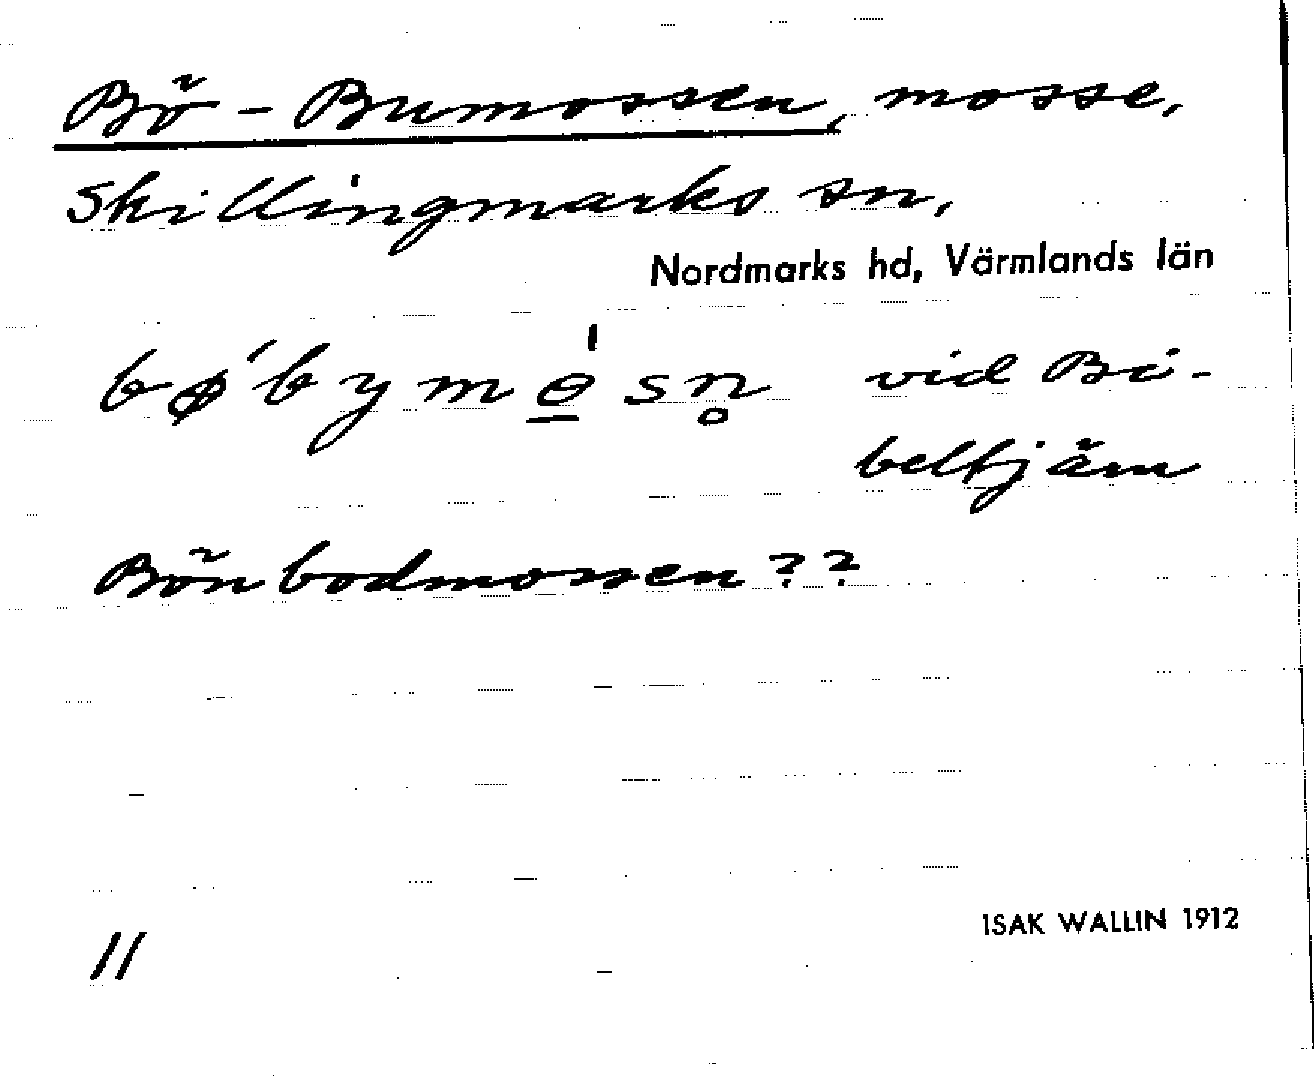 Bö - Bumossen, mosse,
Skillingmarks sn,
Nordmarks hd, Värmlands län
bǿbymo̱̍sn̥ vid Bö-
beltjäm
Bönbodmossen??
11
ISAK WALLIN 1912